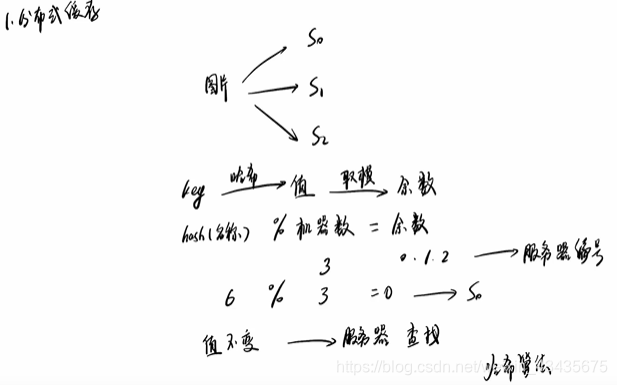 1.分布式缓存
S0
图片 S1
S2
key 哈希 值 取模 余数
hash(名称) % 机器数 = 余数
3 0.1.2 服务器编号
6 % 3 =0 S0
值不变 服务器 查找
哈希算法
https://blog.csdn.net/ 3435675